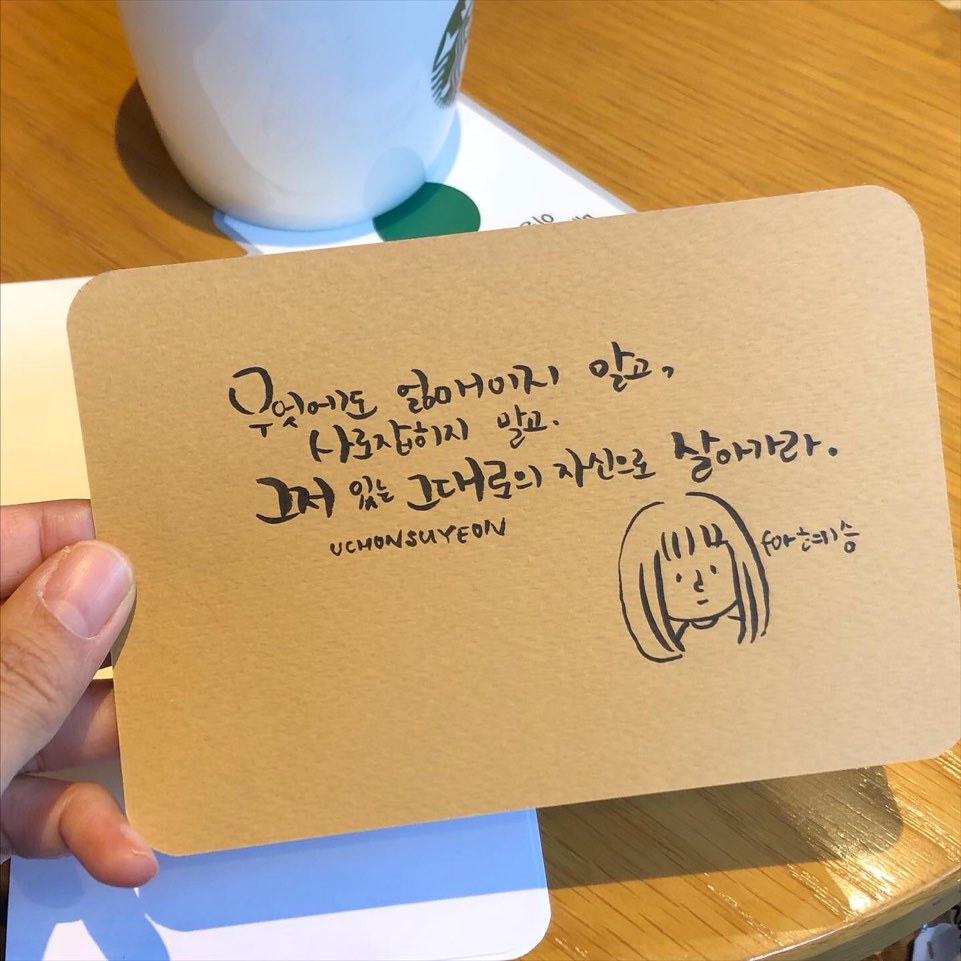 무엇에도 얽매이지 말고,
사로잡히지 말고.
그저 있는 그대로의 자신으로 살아가라.
UCHONSUYEON
for 혜승